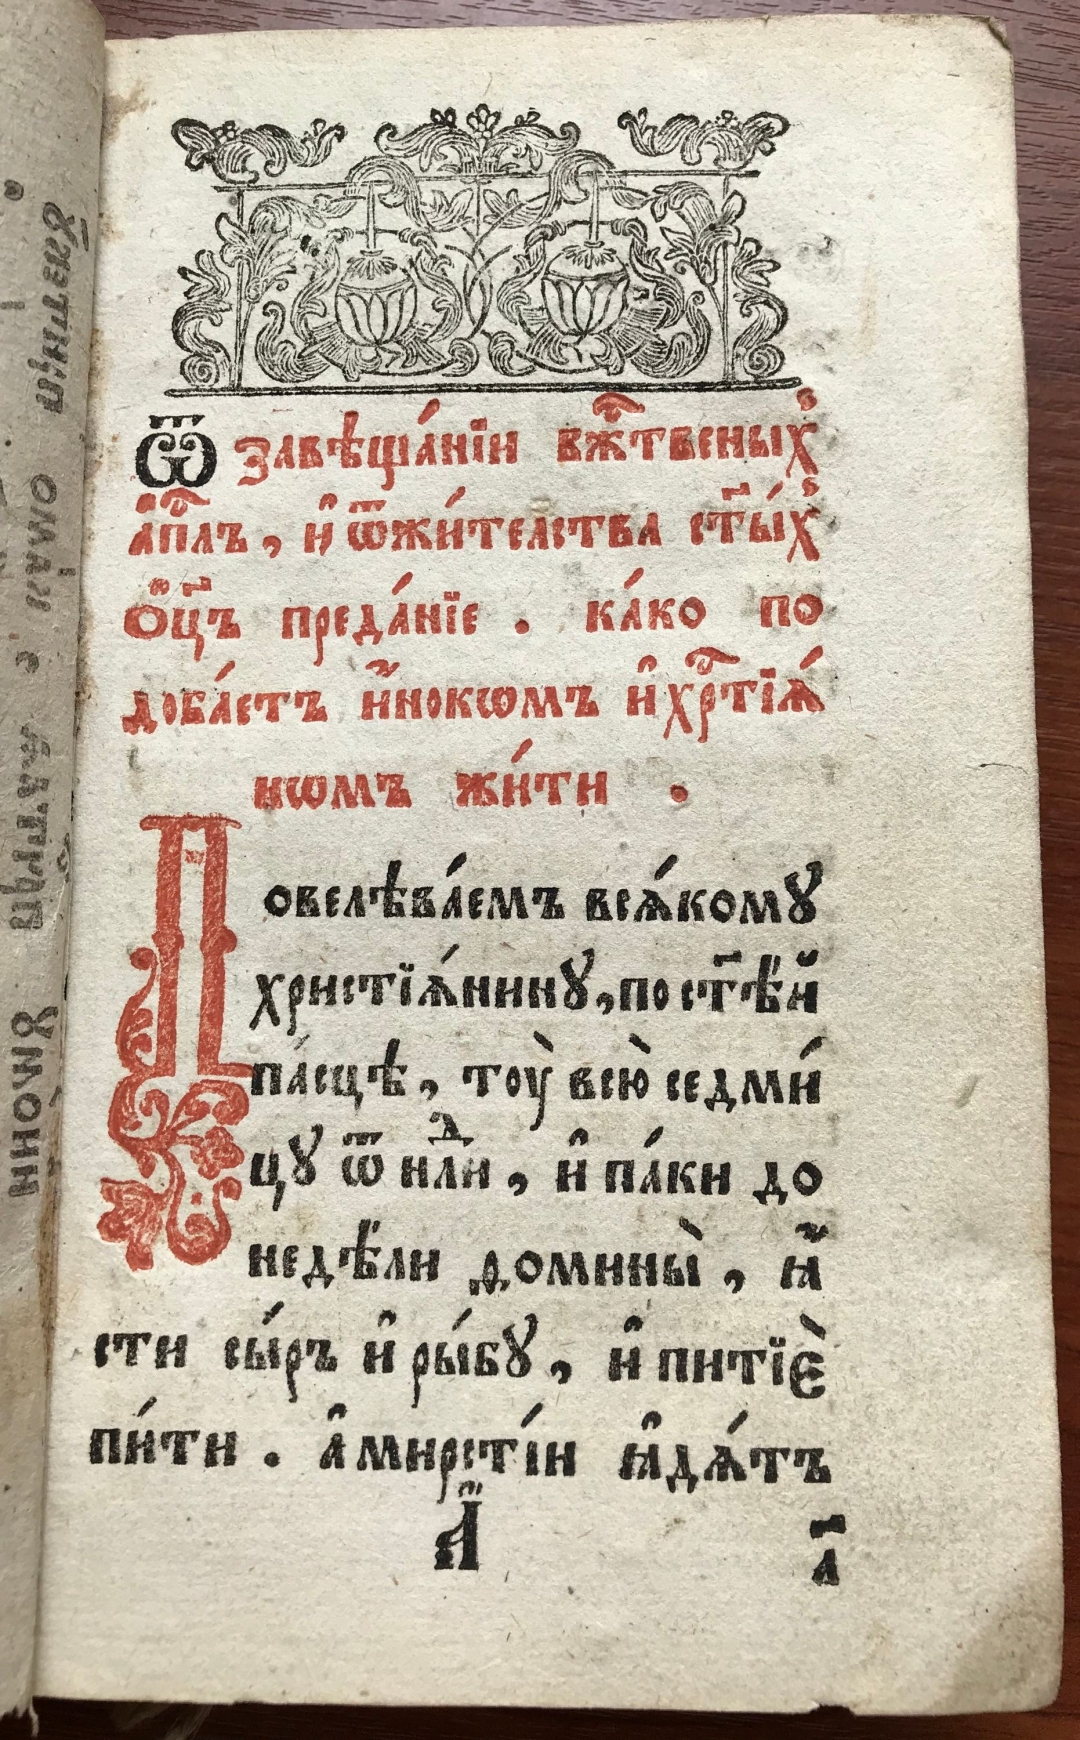 Ѿ завѣща́нїи бж҃твеных̾
а҆пⷭ҇лъ, и҆ ѿжи́телства ст҃ы́х̾
ѻ҆ц҃ъ преда́нїе. ка́ко по
доба́етъ и҆́нокѡмъ и҆ хрⷭ҇тїѧ́
нѡмъ жи́ти.
Повелѣва́емъ всѧ́кому
христїѧ́нину, по ст҃ѣ́й
па́сцѣ, тоу̀ всю̀ седми́
цу ѿ нлⷣи, и҆ па́ки до
недѣ́ли ѳомины̀, ꙗ҆́
сти сы́ръ и҆ ры́бу, и҆ питїѐ
пи́ти. а҆ мирсті́и ꙗ҆дѧ́тъ
а҃